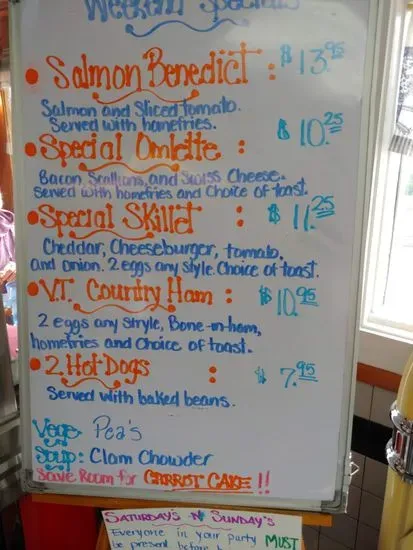 Weekend Specials
• Salmon Benedict : $13.95
Salmon and Sliced tomato.
Served with homefries.
$10.25
• Special Omlette :
Bacon, Scallions, and Swiss Cheese.
Served with homefries and Choice of toast.
• Special Skillet : $11.25
Cheddar, Cheeseburger, tomato,
and onion. 2 eggs any Style. Choice of toast.
• V.T. Country Ham : $10.95
2 eggs any stryle, Bone-in-ham,
homefries and Choice of toast.
• 2 Hot Dogs : $7.95
Served with baked beans.
Vege: Pea's
Soup: Clam Chowder
Save Room for CARROT CAKE!!
SATURDAY'S N SUNDAY'S
Everyone in your party MUST
be present before